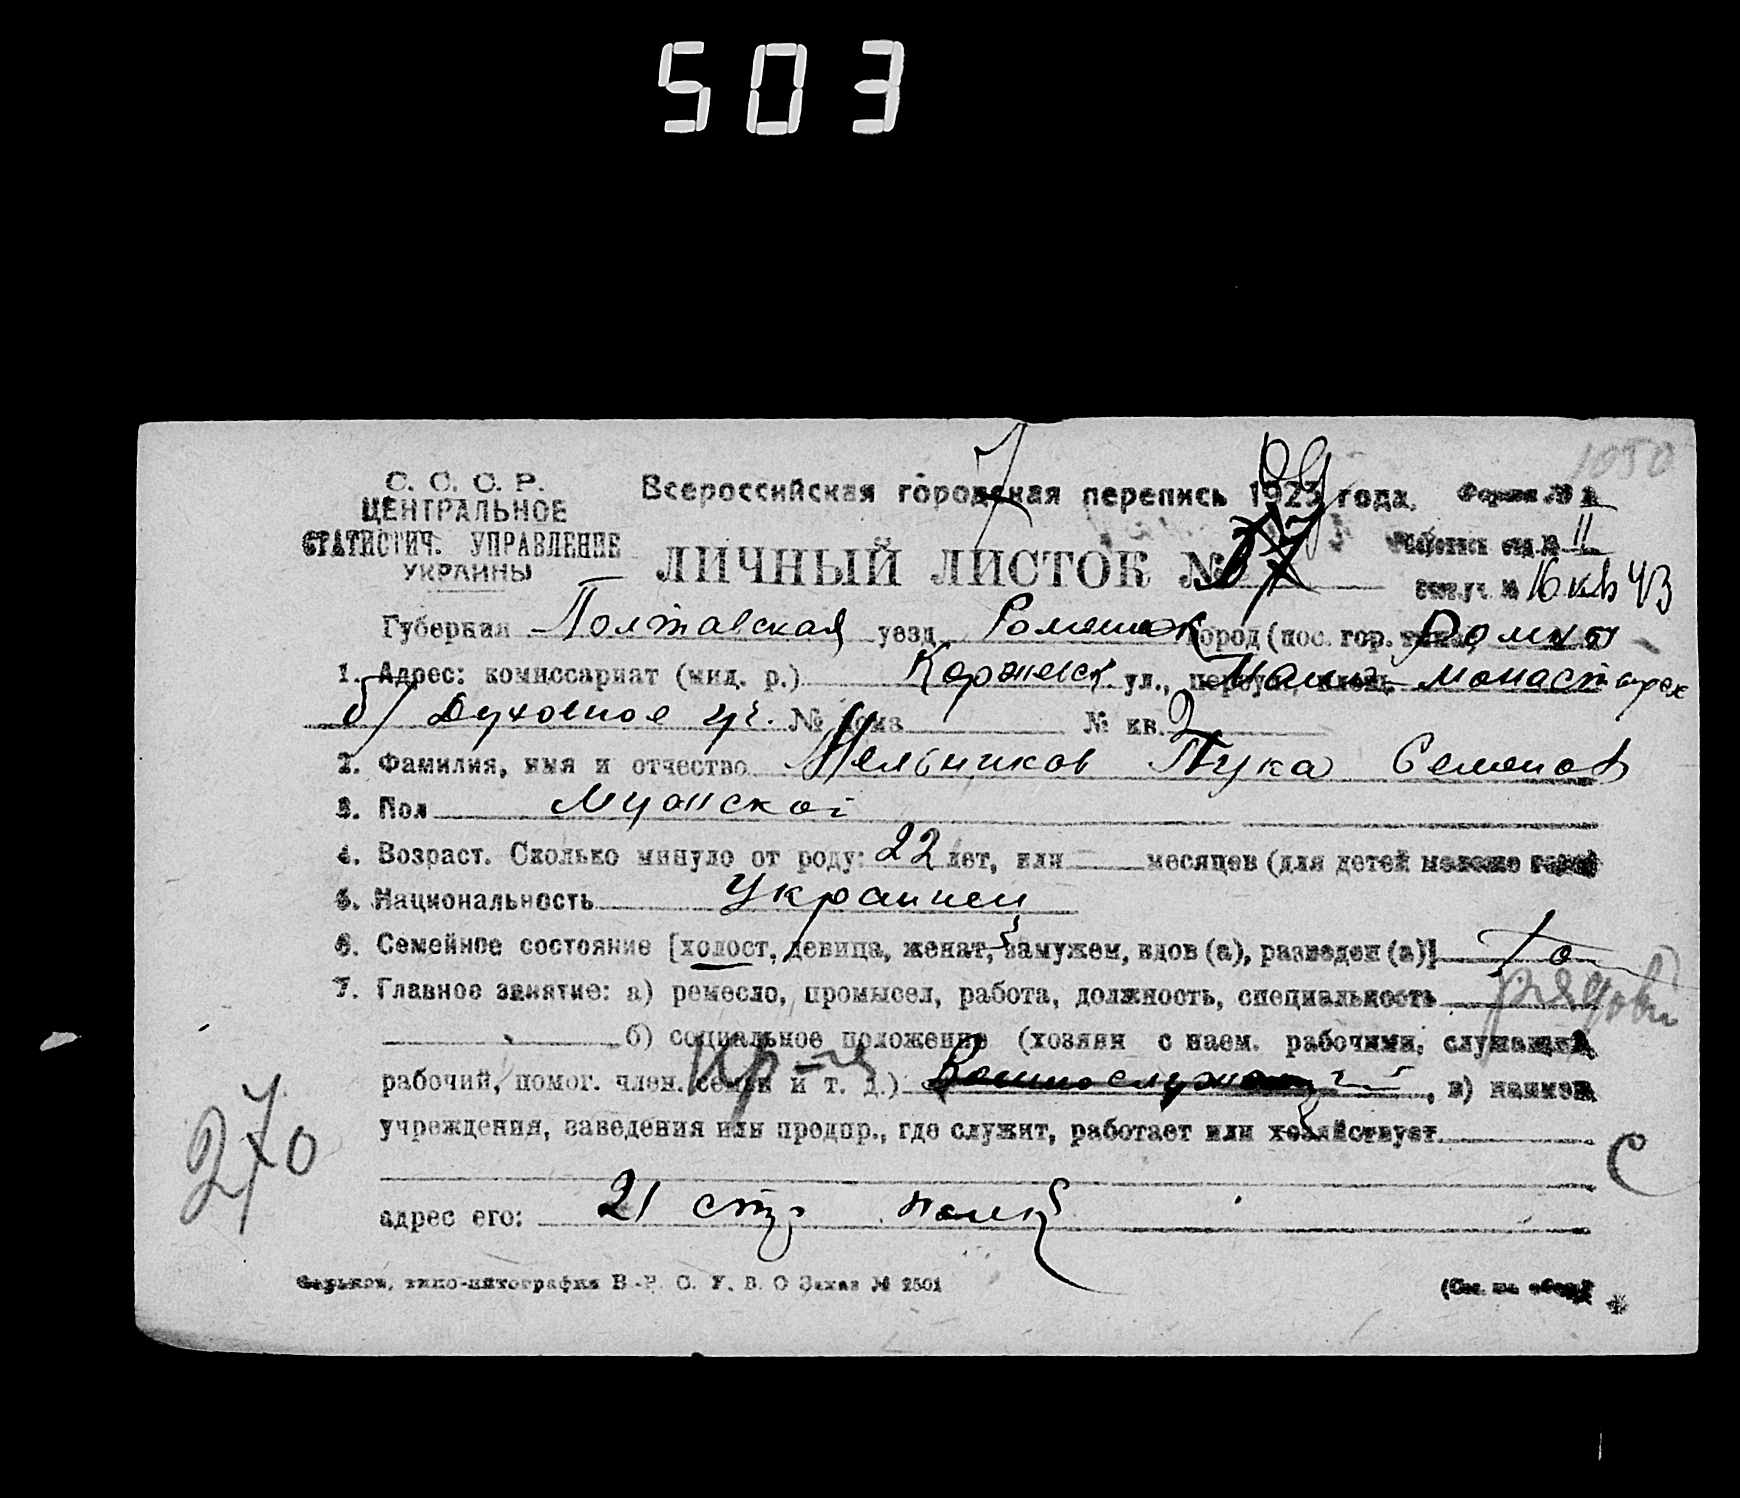 503
1050
С. С. С. Р.
ЦЕНТРАЛЬНОЕ
СТАТИСТИЧ. УПРАВЛЕНИЕ
УКРАИНЫ
Всероссийская городская перепись 1923 года.
Форма № 2
7
ЛИЧНЫЙ ЛИСТОК №
отд. № 11
№ 16 кв 43
Губерния Полтавская уезд Роменск город (пос. гор. типа) Ромны
1. Адрес: комиссариат (мил. р.) Коржевск ул., переул., площ. монастырск
б/ Духовное уч. № дома № кв. 2
2. Фамилия, имя и отчество Мельников Лука Семенов
3. Пол Мужской
4. Возраст. Сколько минуло от роду: 22 лет, или — месяцев (для детей моложе года)
5. Национальность Украинец
6. Семейное состояние [холост, девица, женат, замужем, вдов (а), разведен (а)]
7. Главное занятие: а) ремесло, промысел, работа, должность, специальность рядовой
б) социальное положение (хозяин с наем. рабочими, служащий,
рабочий, помог. член. семьи и т. д.) Военнослужащий, в) наимен.
кр-н
учреждения, заведения или предпр., где служит, работает или хозяйствует
270
С
адрес его: 21 стр полк
Харьков, типо-литография В.-У. С. У. В. О Заказ № 2501
(См. на обор.)